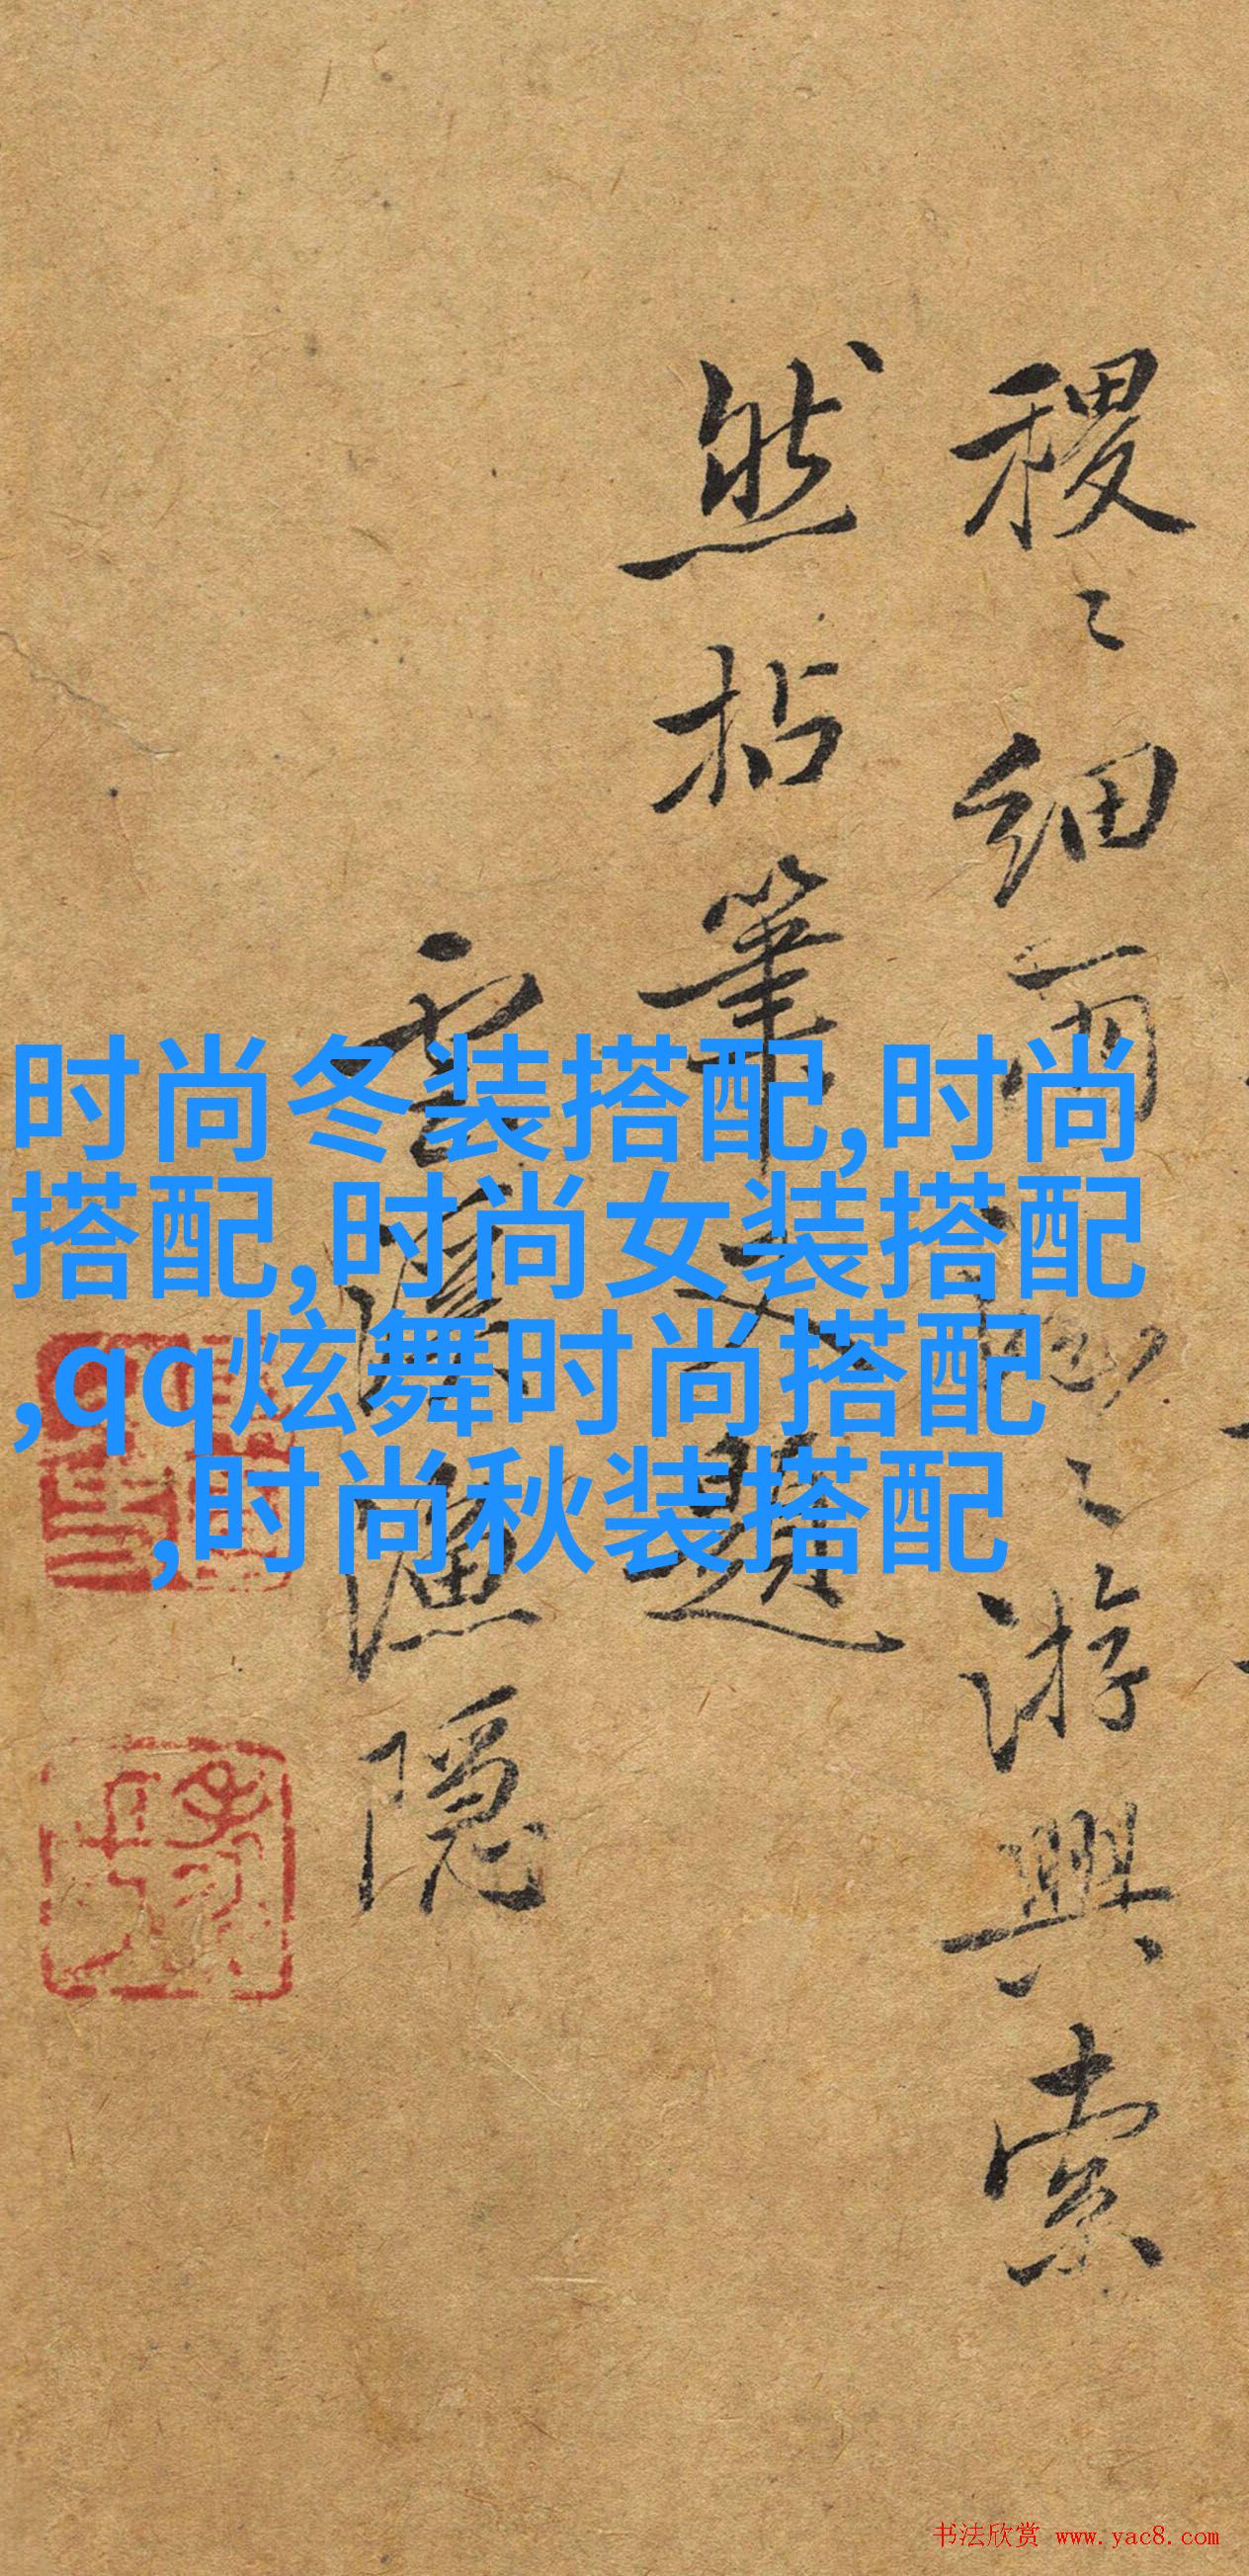 稷〻細雨〻游興索
然拈筆又題
雲溪漁隱
时尚冬装搭配,时尚
搭配,时尚女装搭配
,qq炫舞时尚搭配
,时尚秋装搭配
书法欣赏 www.yac8.com